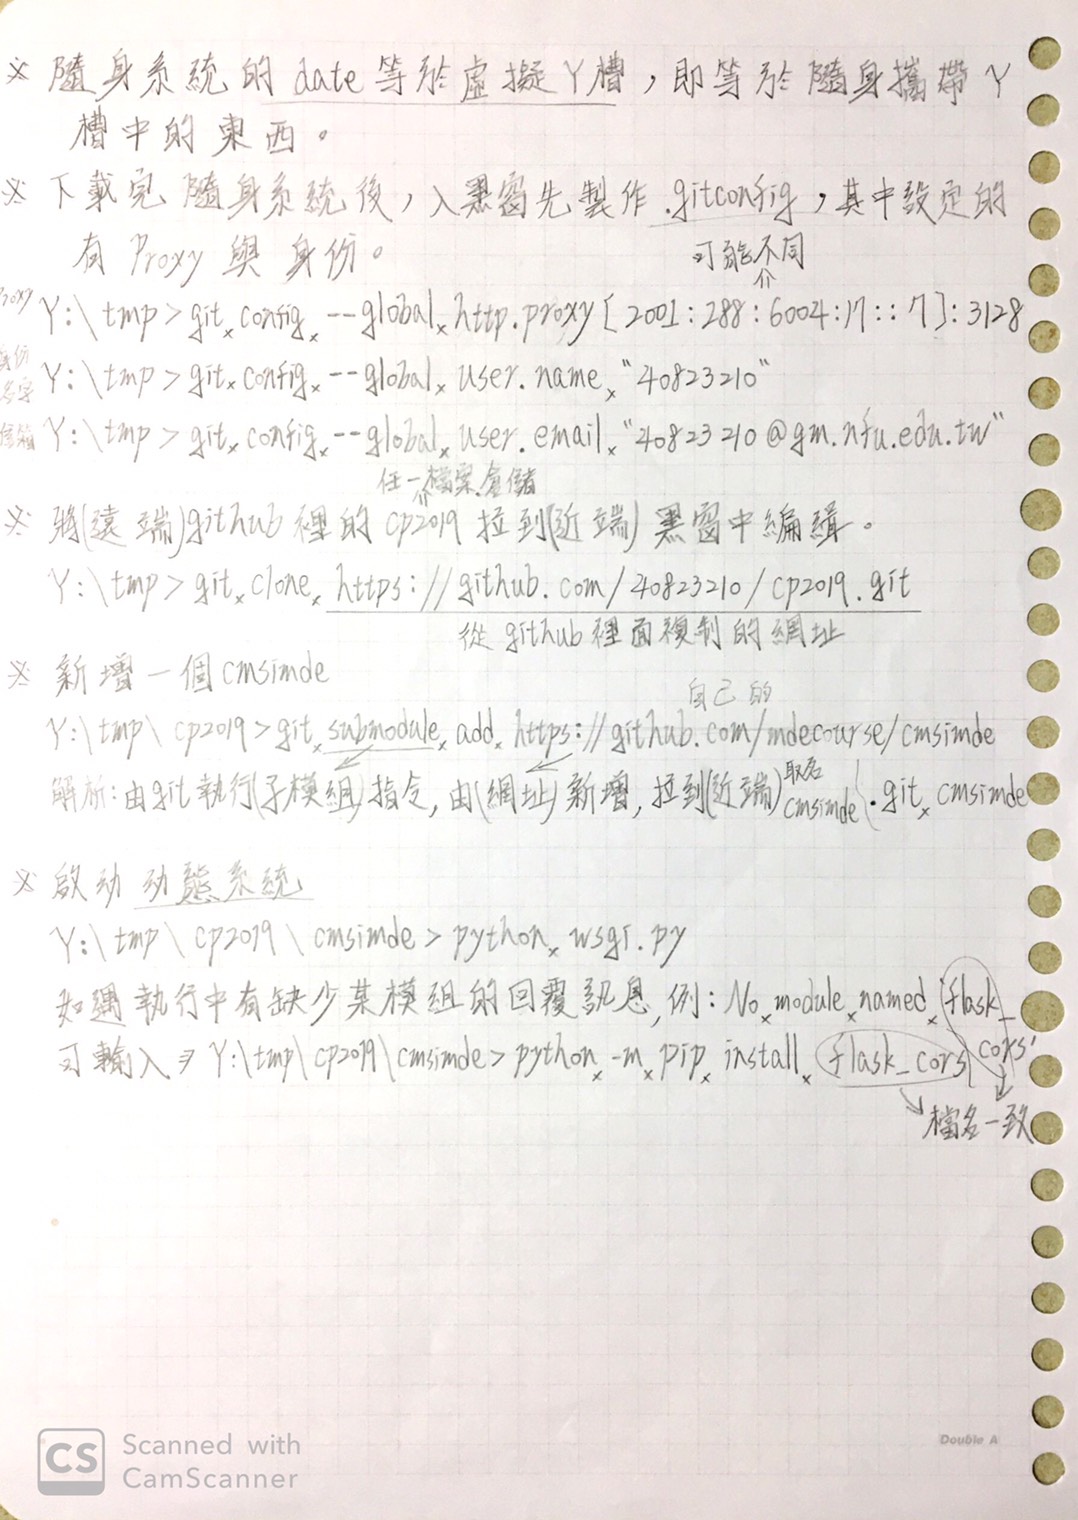 ※ 隨身系統的 date 等於虛擬Y槽，即等於隨身攜帶Y
槽中的東西。
※ 下載完隨身系統後，入黑窗先製作 .gitconfig，其中設定的
有 Proxy 與身份。
可能不同
Proxy Y:\tmp>git×config×--global×http.proxy[2001:288:6004:17::7]:3128
身份
名字 Y:\tmp>git×config×--global×user.name×"40823210"
信箱 Y:\tmp>git×config×--global×user.email×"40823210@gm.nfu.edu.tw"
任一檔案倉儲
※ 將(遠端)github裡的cp2019拉到(近端)黑窗中編緝。
Y:\tmp>git×clone×https://github.com/40823210/cp2019.git
從github裡面複制的網址
※ 新增一個cmsimde
自己的
Y:\tmp\cp2019>git×submodule×add×https://github.com/mdecourse/cmsimde
解析:由git執行(子模組)指令,由(網址)新增,拉到(近端)取名cmsimde .git×cmsimde
※ 啟动动態系統
Y:\tmp\cp2019\cmsimde>python×wsgi.py
如遇執行中有缺少某模組的回覆訊息,例:No×module×named×'flask_cors'
可輸入⇒Y:\tmp\cp2019\cmsimde>python×-m×pip×install×flask_cors
檔名一致
Double A
CS Scanned with
CamScanner